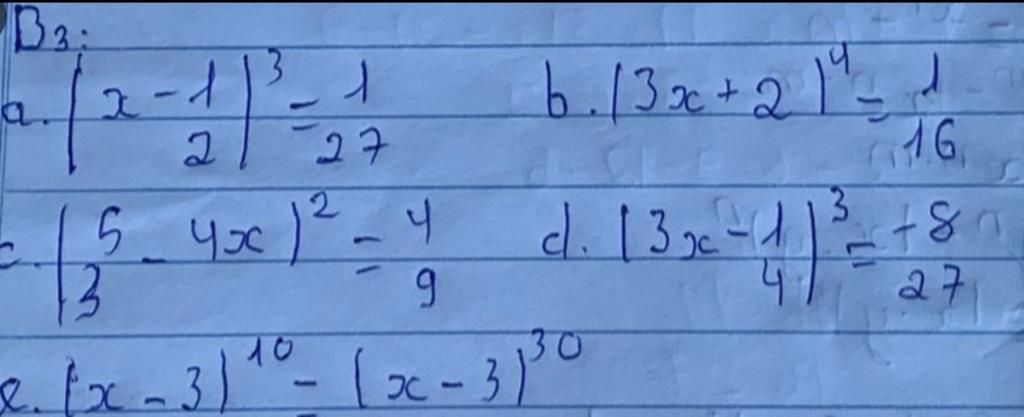 B3:
a. (x - 1/2)^3 = 1/27 b. (3x + 2)^4 = 1/16
c. (5/3 - 4x)^2 = 4/9 d. (3x - 1/4)^3 = -8/27
e. (x - 3)^10 = (x - 3)^30